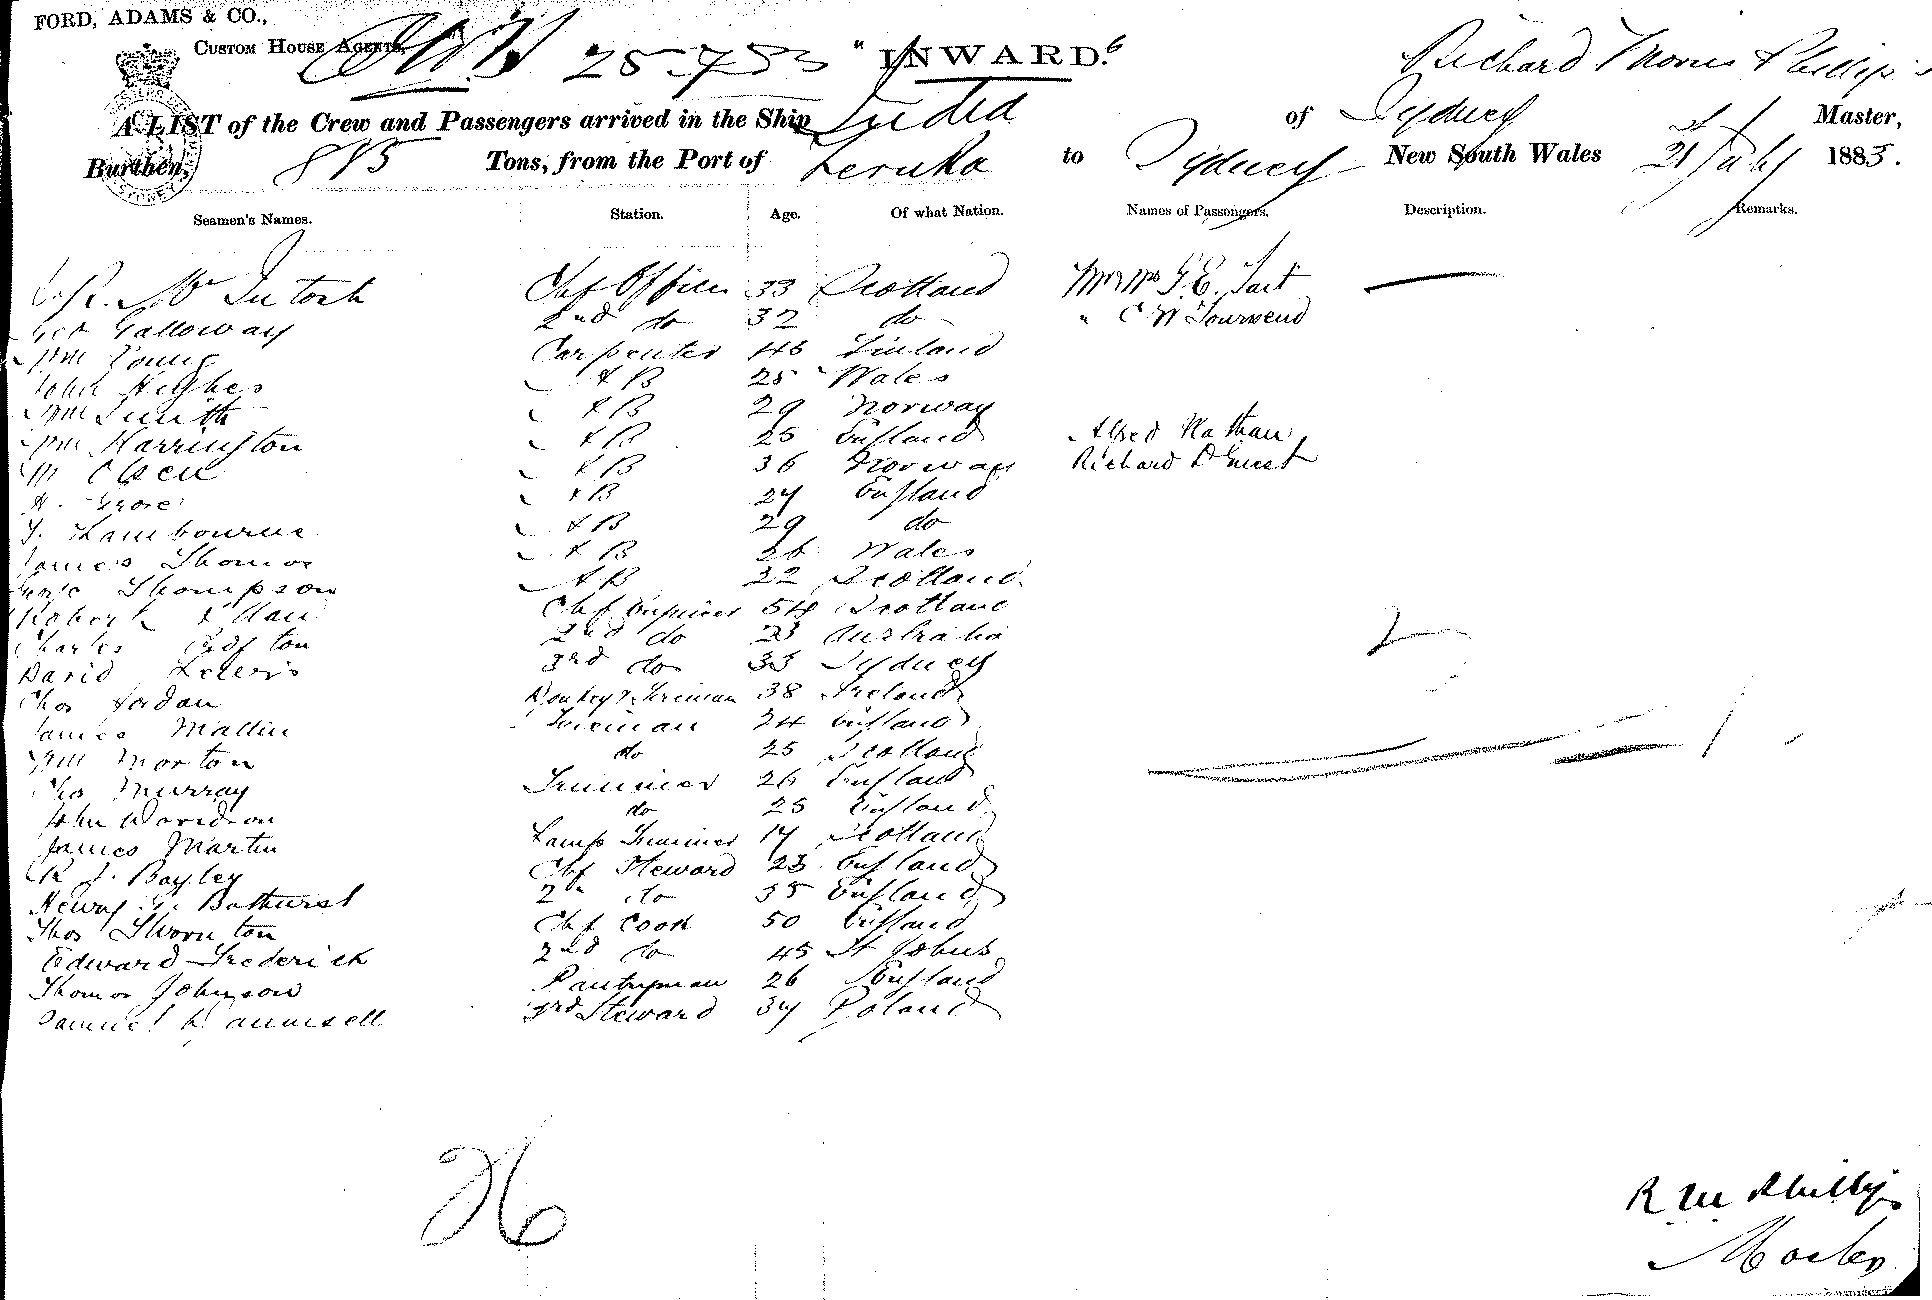 FORD, ADAMS & CO.,
CUSTOM HOUSE AGENTS,
"INWARD."
Richard Morris Phillips
A LIST of the Crew and Passengers arrived in the Ship of Sydney Master,
Burthen, Tons, from the Port of Levuka to Sydney New South Wales 21 July 1883.
Seamen's Names. Station. Age. Of what Nation. Names of Passengers. Description. Remarks.
McIntosh Chf Officer 33 Scotland Mr & Mrs Tait
Geo Galloway 2nd do 32 do " C W Townsend
Wm Young Carpenter 45 Finland
John Hughes AB 25 Wales
Wm Smith AB 29 Norway
Wm Harrington AB 25 England Alfred Nathan
M Olsen AB 36 Norway Richard
H. Grose AB 27 England
AB 29 do
James Thomas AB 26 Wales
Thompson AB 22 Scotland
Robert Allan Chf Engineer 54 Scotland
Charles 2nd do 23 Australia
David 3rd do 33 Sydney
Chas Jordan Donkey & Fireman 38 Ireland
James Mallin Fireman 24 England
Wm Morton do 25 Scotland
Chs Murray Trimmer 26 England
John Davidson do 25 England
James Martin Lamp Trimmer 17 Scotland
R J. Bayley Chf Steward 23 England
Henry G. Bathurst 2nd do 35 England
Thos Thornton Chf Cook 50 England
Edward Frederick 2nd do 45 St Johns
Thomas Johnson Pantryman 26 England
Samuel 3rd Steward 34 Poland
2
26
R M Phillips
Master